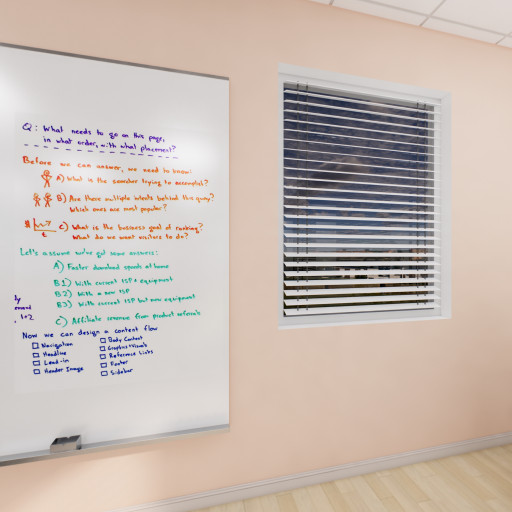 Q: What needs to go on this page,
in what order, with what placement?
Before we can answer, we need to know:
A) What is the searcher trying to accomplish?
B) Are there multiple intents behind this query?
Which ones are most popular?
C) What is the business goal of ranking?
What do we want visitors to do?
Let's assume we've got some answers:
A) Faster download speeds at home
B1) With current ISP + equipment
B2) With a new ISP
B3) With current ISP but new equipment
C) Affiliate revenue from product referrals
Now we can design a content flow
Navigation
Headline
Lead-in
Header Image
Body Content
Graphics/Visuals
Reference Links
Footer
Sidebar